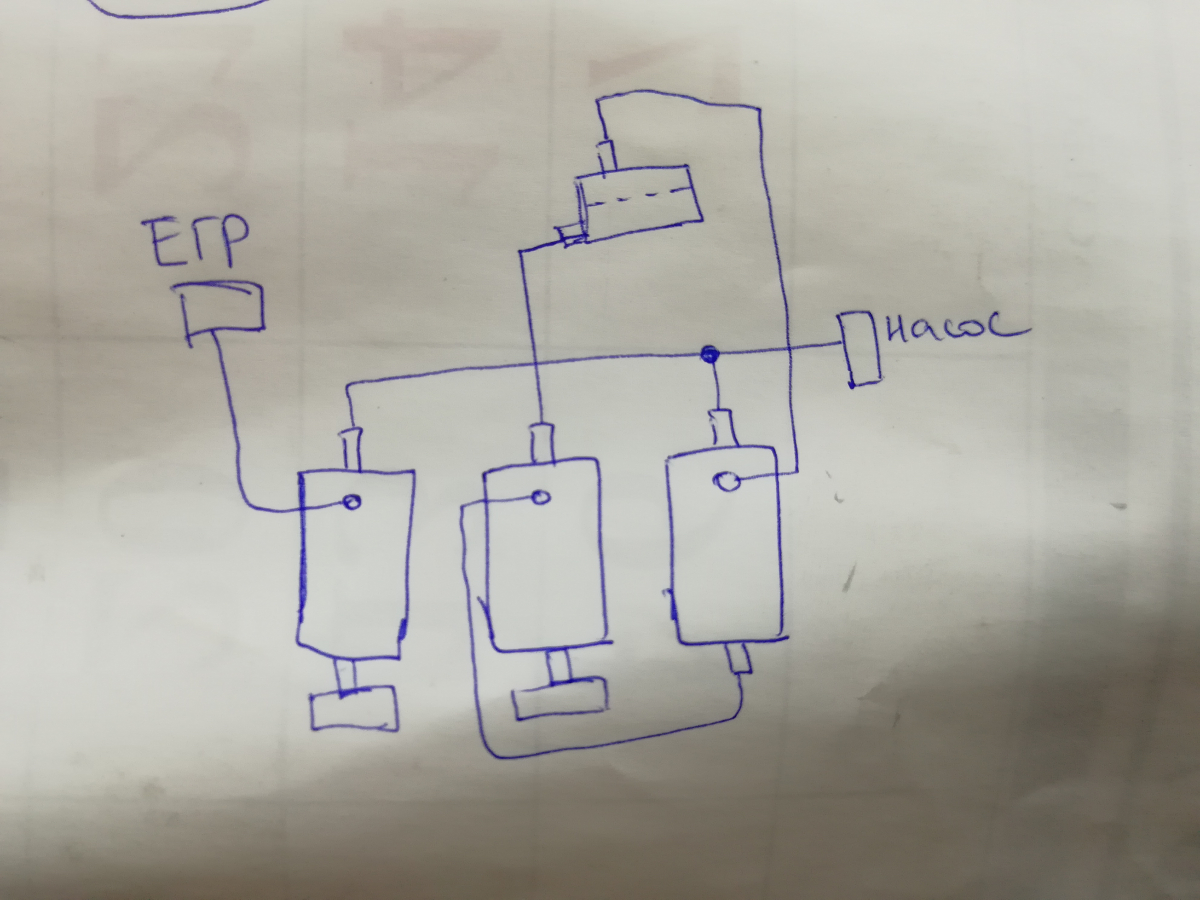 ЕГР
насос